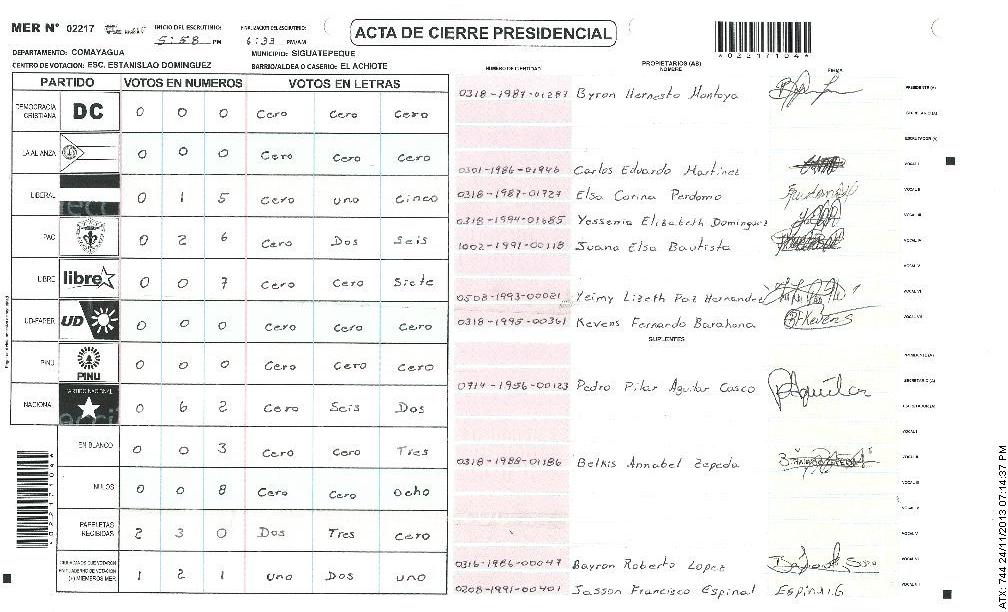 MER N° 02217 INICIO DEL ESCRUTINIO: FINALIZACION DEL ESCRUTINIO: ACTA DE CIERRE PRESIDENCIAL
5:58 PM 6:33 PM/AM
*02217104*
DEPARTAMENTO: COMAYAGUA MUNICIPIO: SIGUATEPEQUE
CENTRO DE VOTACION: ESC. ESTANISLAO DOMINGUEZ BARRIO/ALDEA O CASERIO: EL ACHIOTE
PARTIDO VOTOS EN NUMEROS VOTOS EN LETRAS
DEMOCRACIA CRISTIANA DC 0 0 0 Cero Cero Cero
LA ALIANZA 0 0 0 Cero Cero Cero
LIBERAL 0 1 5 Cero uno Cinco
PAC 0 2 6 Cero Dos Seis
LIBRE libre 0 0 7 Cero Cero Siete
UD-FAPER UD 0 0 0 Cero Cero Cero
PINU PINU 0 0 0 Cero Cero Cero
NACIONAL PARTIDO NACIONAL 0 6 2 Cero Seis Dos
EN BLANCO 0 0 3 Cero Cero Tres
NULOS 0 0 8 Cero Cero Ocho
PAPELETAS RECIBIDAS 2 3 0 Dos Tres Cero
CIUDADANOS QUE VOTARON EN CUADERNO DE VOTACION (+) MIEMBROS MER 1 2 1 uno Dos uno
NUMERO DE IDENTIDAD PROPIETARIOS (AS) NOMBRE FIRMA
0318-1987-01287 Byron Hernesto Montoya PRESIDENTE (A)
SECRETARIO (A)
ESCRUTADOR (A)
0301-1986-01946 Carlos Eduardo Martinez VOCAL I
0318-1987-01727 Elsa Carina Perdomo VOCAL II
0318-1994-01685 Yessenia Elizabeth Dominguez VOCAL III
1002-1991-00118 Juana Elsa Bautista VOCAL IV
VOCAL V
0508-1993-00021 Yeimy Lizeth Paz Hernandez VOCAL VI
0318-1995-00361 Kevens Fernando Barahona Kevens VOCAL VII
SUPLENTES
PRESIDENTE (A)
0714-1956-00123 Pedro Pilar Aguilar Casco PAguilar SECRETARIO (A)
ESCRUTADOR (A)
VOCAL I
0318-1988-01186 Belkis Annabel Zepeda VOCAL II
VOCAL III
VOCAL V
0316-1986-00047 Bayron Roberto Lopez VOCAL VI
0208-1991-00401 Jasson Francisco Espinal VOCAL VII
*02217104*
ATX: 744 24/11/2013 07:14:37 PM